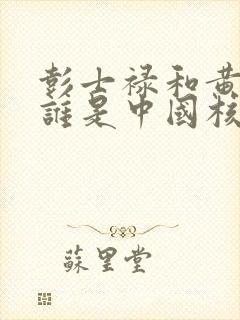 彭士禄和黄
誰是中國核
蘇里堂